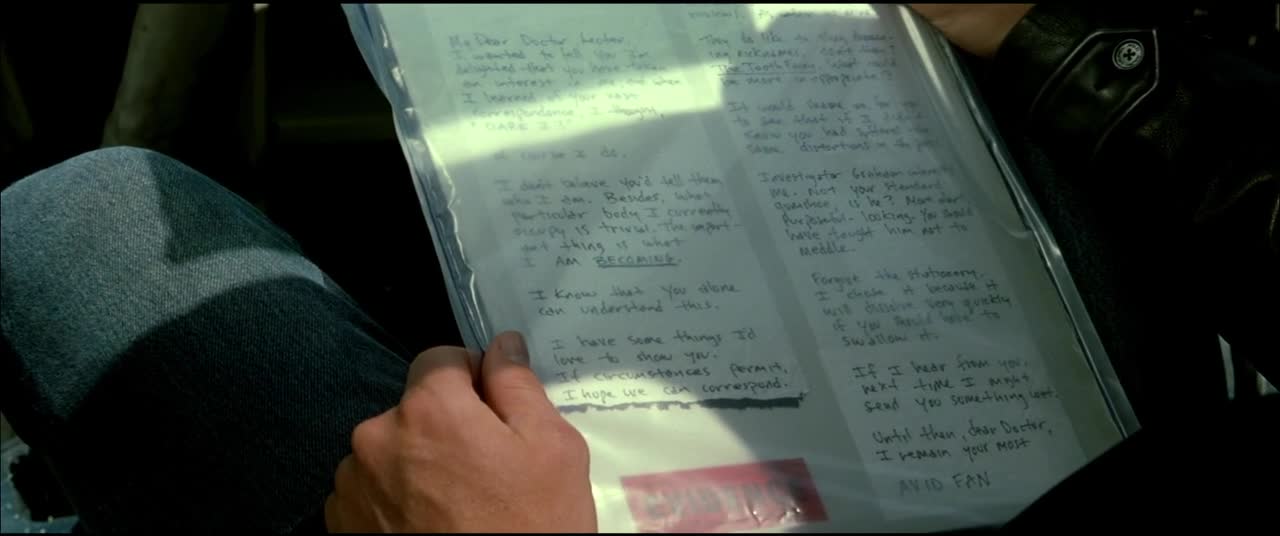 My Dear Doctor Lecter,
I wanted to tell you I'm
delighted that you have taken
an interest in
I learned of your vast
correspondence I thought,
"DARE I?"
Of course I do.
I don't believe you'd tell them
who I am. Besides, what
particular body I currently
occupy is trivial. The import-
ant thing is what
I AM BECOMING.
I know that you alone
can understand this.
I have some things I'd
love to show you.
If circumstances permit,
I hope we can correspond.
They do like to
ing nicknames, don't they?
The Tooth Fairy. What could
be more inappropriate?
It would shame me for you
to see that if I didn't
know you had suffered the
same distortions in the press
Investigator Graham interests
me. Not your standard
gumshoe, is he? More
purposeful-looking. You should
have taught him not to
meddle.
Forgive the stationery.
I chose it because it
will dissolve very quickly
if you should have to
swallow it.
If I hear from you,
next time I might
send you something wet.
Until then, dear Doctor,
I remain your most
AVID FAN